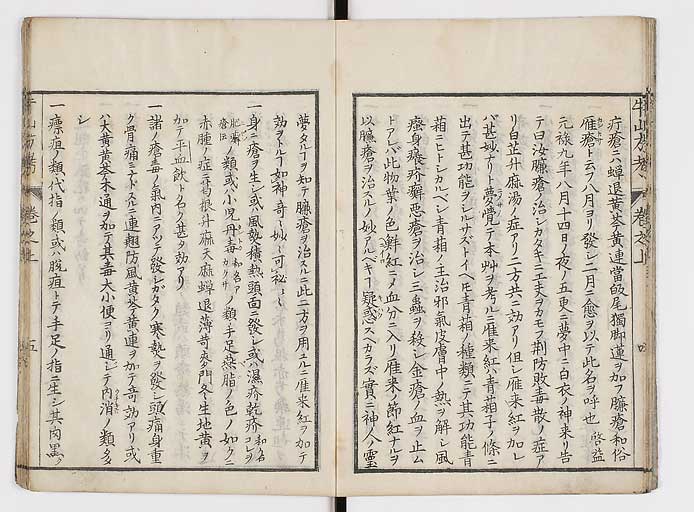 疔瘡ニハ蟬退黄芩黄連當皈尾獨脚蓮ヲ加フ臁瘡和俗
雁瘡ト云フ八月ヨリ發シ二月ニ愈ヲ以テ此名ヲ呼也啓益
元禄九年八月十四日ノ夜ノ五更ニ夢中ニ白衣ノ神来リ告
テ曰汝臁瘡ヲ治シカタキニ工夫ヲカモフ荆防敗毒散ノ症ア
リ白芷升麻湯ノ症アリ二方共ニ効アリ但シ雁来紅ヲ加レ
ハ甚妙ナリト夢覺テ本艸ヲ考ルニ雁来紅ハ青葙子ノ條ニ
出テ甚功能ヲシルサズトイヘモ青葙ノ種類ニテ其功能青
葙ニヒトシカルベシ青葙ノ主治邪氣皮膚中ノ熱ヲ解シ風
瘙身痒疥癬惡瘡ヲ治シ三蟲ヲ殺シ金瘡ノ血ヲ止ム
トアレバ此物葉ノ色鮮紅ニメ血分ニ入リ雁来ノ節紅ナルヲ
以臁瘡ヲ治スルノ妙アルベキ疑惑スヘカラズ實ニ神人ノ靈
牛山方考 巻之上
夢タルヿヲ知テ臁瘡ヲ治スルニ此二方ヲ用ユルニ雁来紅ヲ加テ
効ヲトルヿ如神奇〻妙〻可秘〻〻
一身ニ瘡ヲ生シ或ハ風勢積熱頭面ニ發シ或ハ濕瘡乾瘡和名
ノ類或ハ小児丹毒和名ノ類手足燕脂ノ色ノ如クニ
赤腫ノ症ニ葛根升麻天麻蟬退薄苛麥門冬生地黄ヲ
加テ平血飲ト名ク甚タ効アリ
一諸ノ瘡毒ノ氣内ニアツテ發シガタク寒熱ヲ發シ頭痛身重
ク骨痛ニ連翹防風黄芩黄連ヲ加テ奇効アリ或
ハ大黄黄芩木通ヲ加テ其毒大小便ヨリ通シテ内消ノ類多
シ
一瘭疽ノ類代指ノ類或ハ脱疽トテ手足ノ指ニ生シ其肉黒ク
牛山方考 巻之上 五